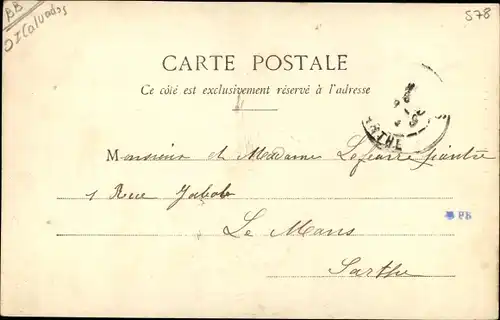 BB
OI Calvados
578
CARTE POSTALE
Ce côté est exclusivement réservé à l'adresse
Monsieur et Madame Lefeuvre peintre
1 Rue
Le Mans
Sarthe